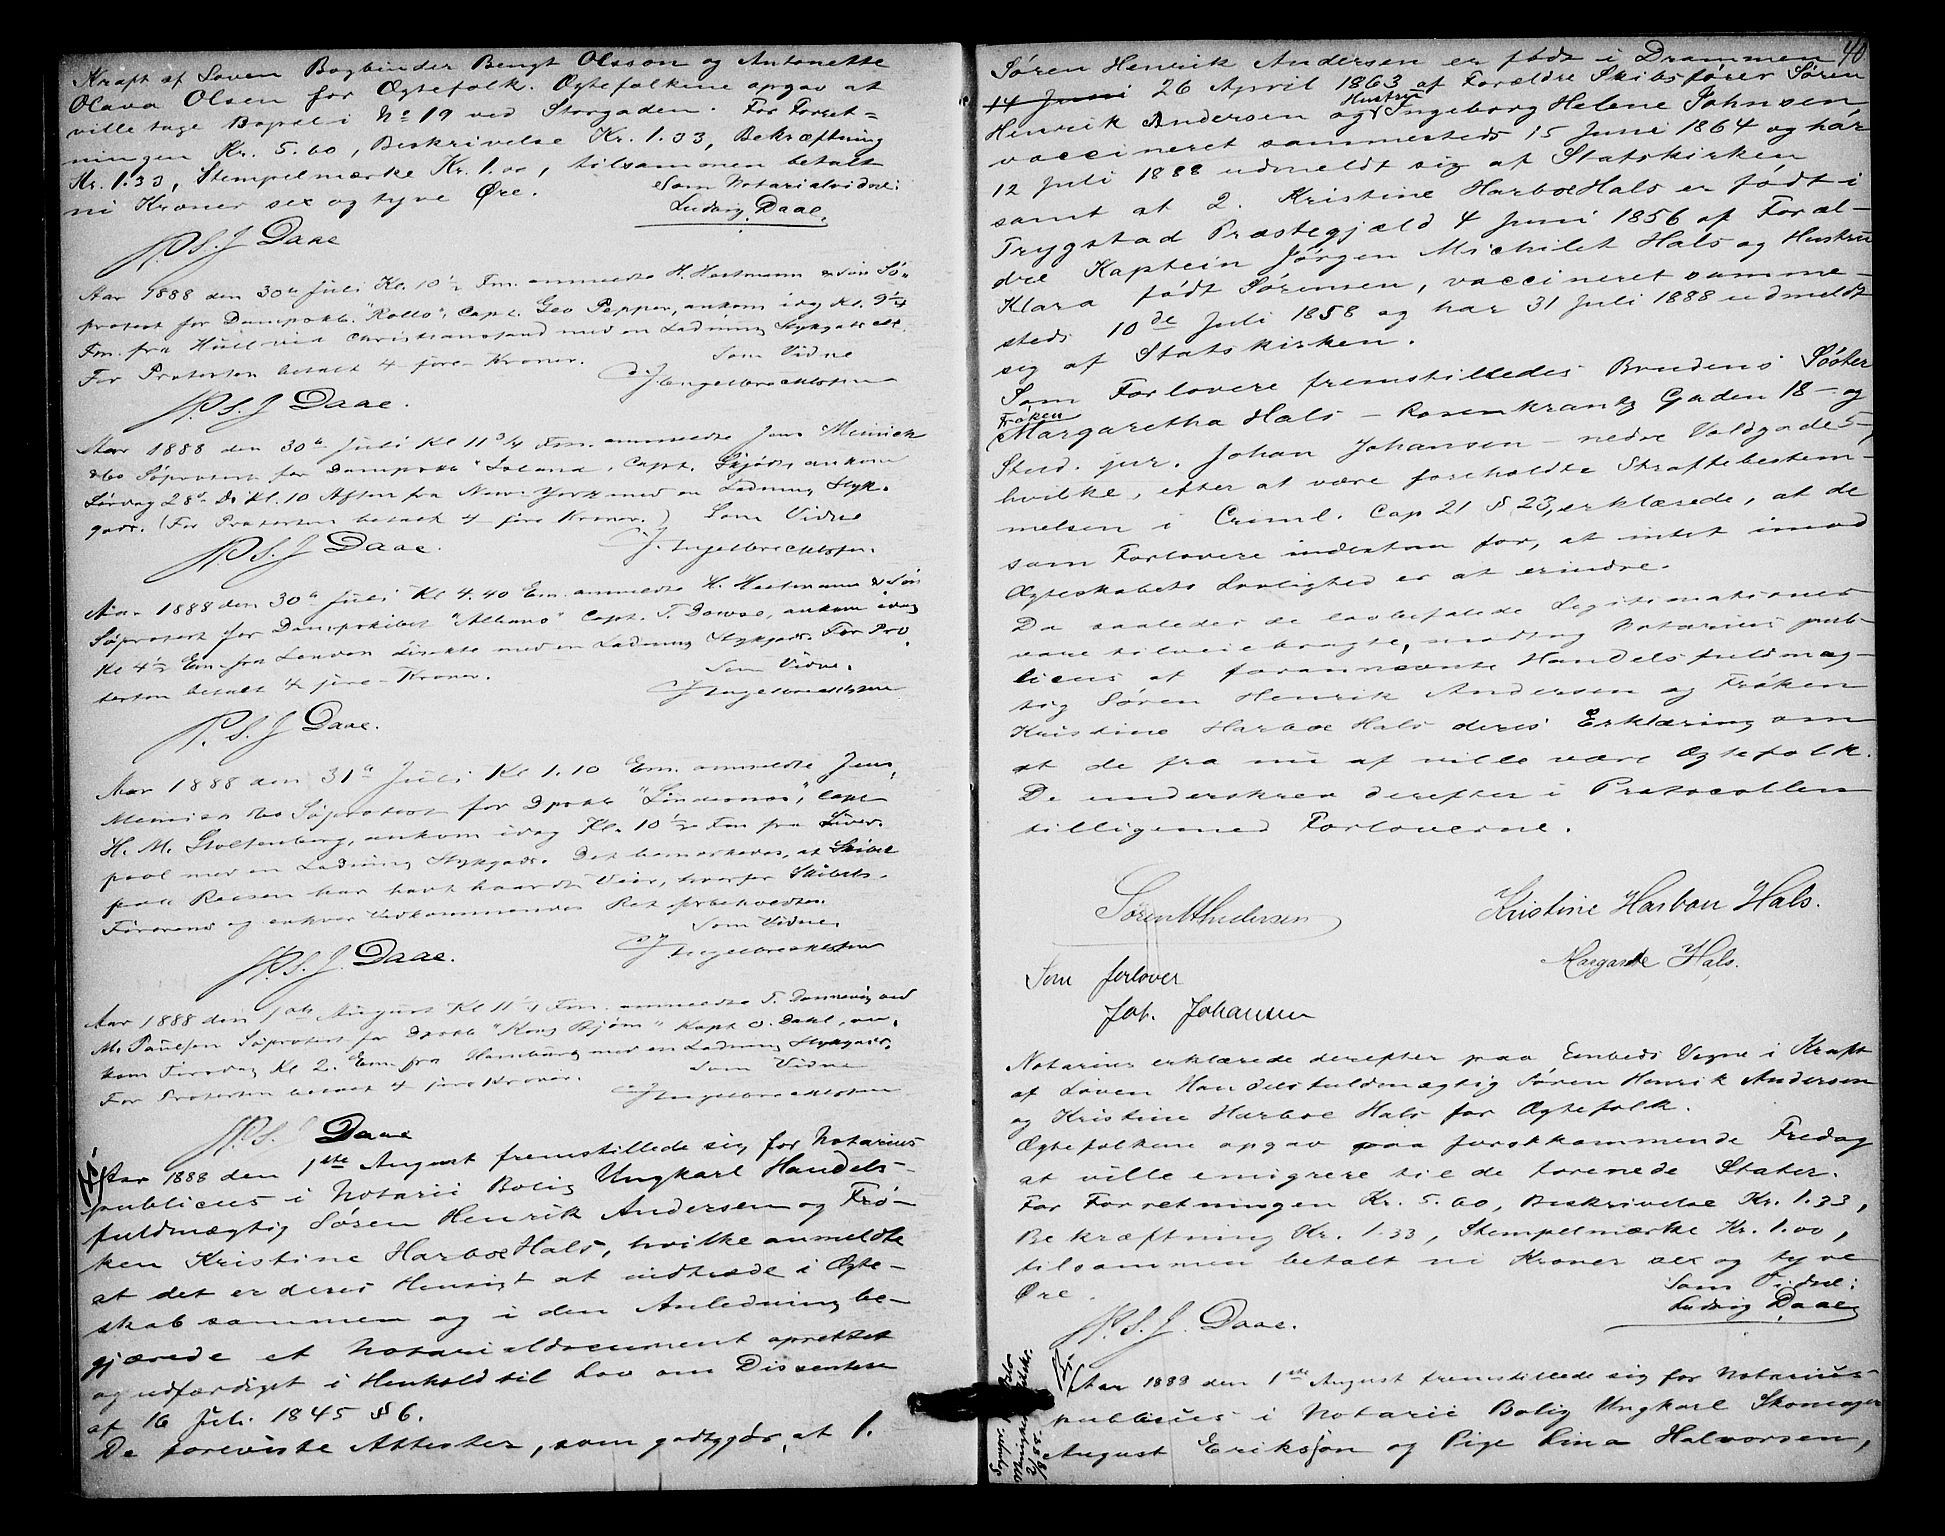 Kraft af Loven Bogbinder Bengt Olsson og Antonette
Olava Olsen for Ægtefolk. Ægtefolkene opgav at
ville tage Bopæl i No 19 ved Storgaden For Forret=
ningen Kr. 5.60, Beskrivelse Kr. 1.33, Bekræftning
Kr. 1.33, Stempelmærke Kr. 1.00, tilsammen betalt
ni Kroner sex og tyve Øre.
Som Notarialvidne:
Ludvig Daae.
N.P.S.J. Daae
Aar 1888 den 30te Juli Kl. 10 1/2 Fm. anmeldte H. Heitmann & Søn Sø-
protest for Dampskb. "Rollo", Capt. Geo Pepper, ankom idag Kl. 9 1/4
Fm. fra Hull via Christianssand med en Ladning Stykgods etc.
For Protesten betalt 4 fire Kroner.
Som Vidne
J. Engelbrechtsen
N.P.S.J. Daae.
Aar 1888 den 30te Juli Kl 11 3/4 Fm. anmeldte Jens Meinich
& Co Søprotest for Dampskb "Island", Capt. Skjødt, ankom
Lørdag 28de Ds Kl. 10 Aften fra New-York med en Ladning Styk-
gods. (For Protesten betalt 4 fire Kroner.)
Som Vidne
J. Engelbrechtsen.
N.P.S.J Daae.
Aar 1888 den 30te Juli Kl 4.40 Em. anmeldte H. Heitmann & Søn
Søprotest for Dampskibet "Albano" Capt. T. Dowse, ankom idag
Kl 4 1/2 Em. fra London direkte med en Ladning Stykgods. For Pro-
testen betalt 4 fire Kroner.
Som Vidne.
J. Engelbrechtsen
N.P.S.J Daae.
Aar 1888 den 31te Juli Kl 1.10 Em. anmeldte Jens
Meinich & Co Søprotest for Dpskb "Lindesnæs", Capt
H. M. Stoltenberg, ankom idag Kl. 10 1/2 Fm fra Liver-
pool med en Ladning Stykgods. Det bemærkedes, at Skibet
paa Reisen har havt haardt Veir, hvorfor Skibets-
Førerens og enhver Vedkommendes Ret forbeholdtes.
Som Vidne
J. Engelbrechtsen
N.P.S.J. Daae.
Aar 1888 den 1ste August Kl 11 1/4 Fm. anmeldte T. Dannevig ved
M. Paulsen Søprotest for Dpskb "Kong Bjørn" Kapt O. Dahl, an-
kom Tirsdag Kl 2. Em. fra Hamburg med en Ladning Stykgods.
For Protesten betalt 4 fire Kroner.
Som Vidne
J. Engelbrechtsen
N.P.S.J Daae
Aar 1888 den 1ste August fremstillede sig for Notarius
publicus i Notarii Bolig Ungkarl Handels-
fuldmægtig Søren Henrik Andersen og Frø-
ken Kristine Harboe Hals, hvilke anmeldte
at det er deres Hensigt at indtræde i Ægte-
skab sammen og i den Anledning be-
gjærede et Notarialdocument oprettet
og udfærdiget i Henhold til Lov om Dissentere
af 16 Juli 1845 § 6.
De foreviste Attester, som godtgjør, at 1.
40
Søren Henrik Andersen er født i Drammen
14 Juni 26 April 1863 af Forældre Skibsfører Søren
Henrik Andersen og Hustru Ingeborg Helene Johnsen,
vaccineret sammesteds 15 Juni 1864 og har
12 Juli 1888 udmeldt sig af Statskirken
samt at 2. Kristine Harboe Hals er født i
Trygstad Præstegjæld 4 Juni 1856 af Foræl-
dre Kaptein Jørgen Michelet Hals og Hustru
Klara født Sørensen, vaccineret samme-
steds 10de Juli 1858 og har 31 Juli 1888 udmeldt
sig af Statskirken.
Som Forlovere fremstilledes Brudens Søster
Frøken Margaretha Hals - Rosenkrantz Gaden 18 - og
Stud. jur. Johan Johansen - nedre Voldgade 5,
hvilke, efter at være foreholdte Straffebestem-
melsen i Criml. Cap 21 § 23, erklærede, at de
som Forlovere indestaa for, at intet imod
Ægteskabets Lovlighed er at erindre.
Da saaledes de lovbefalede Legitimationer
vare tilveiebragte, modtog Notarius pub-
licus af forannævnte Handelsfuldmæg-
tig Søren Henrik Andersen og Frøken
Kristine Harboe Hals deres Erklæring om
at de fra nu af ville være Ægtefolk.
De underskrev derefter i Protocollen
tilligemed Forloverne.
Søren H Andersen
Kristine Harboe Hals.
Margarete Hals.
Som forlover
Joh. Johansen
Notarius erklærede derefter paa Embeds Vegne i Kraft
af Loven Handelsfuldmægtig Søren Henrik Andersen
og Kristine Harboe Hals for Ægtefolk.
Ægtefolkene opgav paa førstkommende Fredag
at ville emigrere til de forenede Stater.
For Forretningen Kr. 5.60, Beskrivelse Kr. 1.33,
Bekræftning Kr. 1.33, Stempelmærke Kr. 1.00,
tilsammen betalt ni Kroner sex og tyve
Øre.
Som Vidne:
Ludvig Daae
N.P.S.J. Daae.
Aar 1888 den 1ste August fremstillede sig for Notarius
publicus i Notarii Bolig Ungkarl Skomager
August Eriksson og Pige Lina Halvorsen,